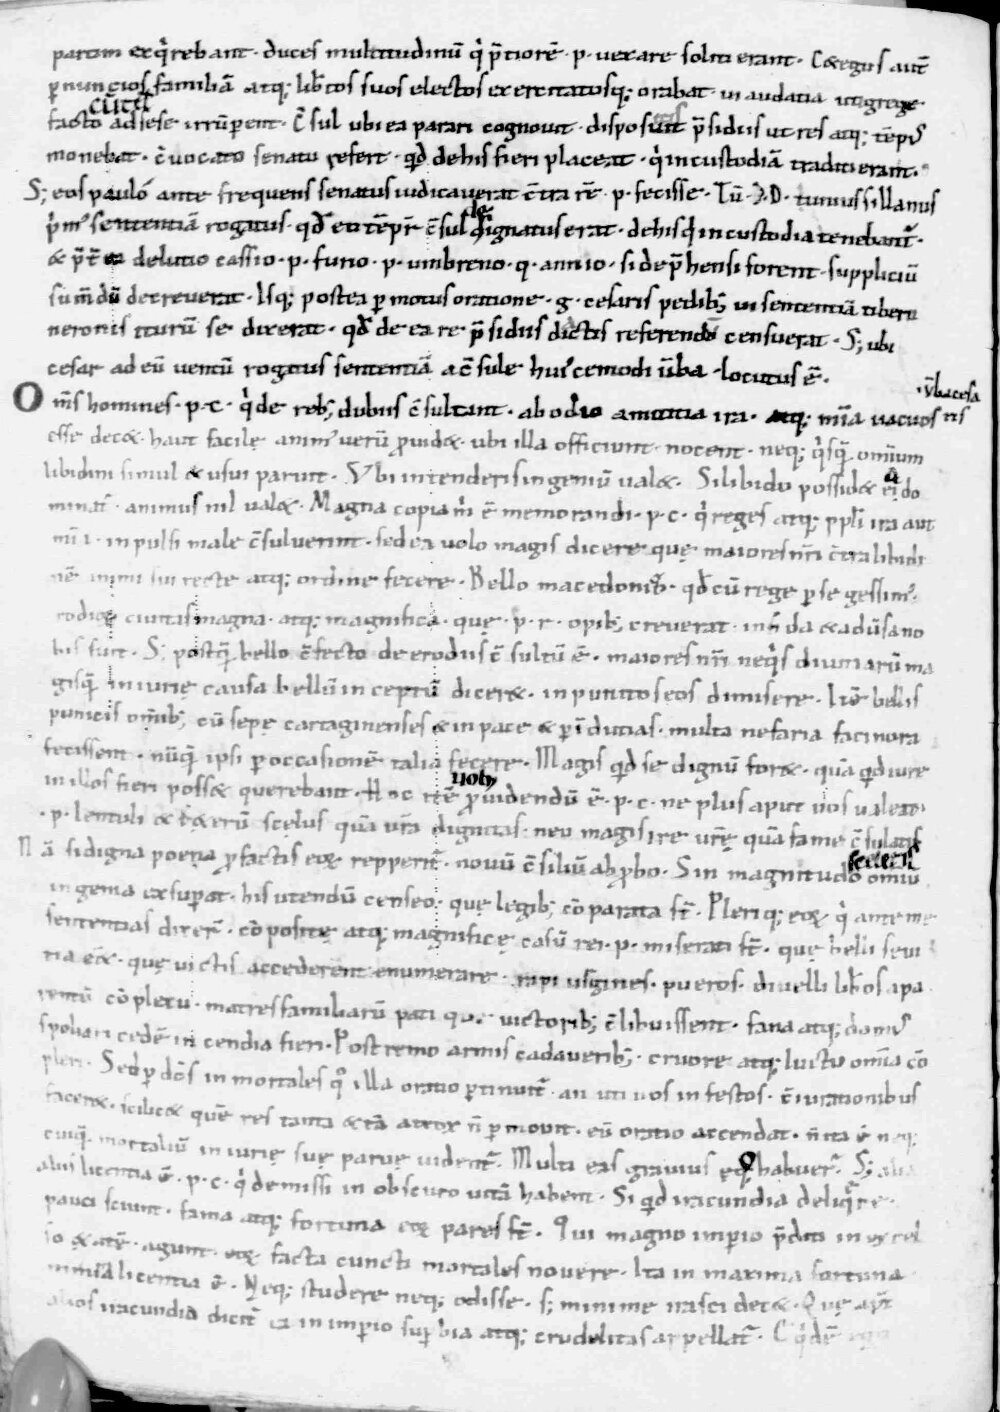 partim exq̇rebant · duces multitudinū q̇ p̄tio rē · p · vexare soliti erant · Cethegus autē
p nuncios familiā atq; lib̄tos suos electos exercitatosq; orabat · in audatia uti grege
facto cū telis ad sese irrūperent · C̄sul ubi ea parari cognovit · dispositis p̄sidiis ut res atq; tēpꝰ
monebat · c̄vocato senatu refert · qd̄ de his fieri placeat · q̇ in custodiā traditi erant ·
S; eos pauló ante frequens senatus iudicaverat c̄tra rē · p · fecisse · Tū · D · iunius sillanus
ṗmꝰ sententiā rogatus · qd̄ eo tēpr̄ c̄sul designatus erat · de his q̇ in custodia tenebant̄ ·
& p̄t̄ea de lutio cassio · p · furio · p · umbreno · q · annio · si dep̄hensi forent · suppliciū
sūm̄dū decreverat · Isq; postea p motus oratione · g · cesaris pedib; in sententiā tiberii
neronis iturū se dixerat · qd̄ de ea re p̄sidiis ad̄ictis referendū censuerat · S; ubi
cesar ad eū ventū rogatus sententiā a c̄sule huiꝰcemodi ūba locutus ē ·
Om̄s homines · p · c · q̇ de reb; dubiis c̄sultant · ab odio amicitia ira · atq; mīa vacuos
·ūba cesa
ris
esse dec& · haut facilę animꝰ verū p̄vid& · ubi illa officiunt · nocent · neq; q̇sq̄ omnium
libidini simul & usui paruit · Vbi intenderis ingeniū val& · Si libido possid& ea do
minat̄ · animus nil val& · Magna copia m̄ ē memorandi · p · c · q̇ reges atq; ppl̄i ira aut
mīa · inpulsi male c̄suluerint · sed ea volo magis dicere quę maiores nr̄i c̄tra libidi
nē animi sui recte atq; ordine fecere · Bello macedonico · qd̄ cū rege pse gessimꝰ ·
rodioꝝ civitas magna · atq; magnifica · quę · p · r · opib; creverat · infida & adūsa no
bis fuit · S; postq̄ bello c̄fecto de erodiis c̄sultū ē · maiores nr̄i neq̇s divitiarū ma
gisq̄ iniurię causa bellū inceptū dicer& · inpunitos eos dimisere · Itē bellis
punicis om̄ib; cū sepe cartaginenses & in pace & p īdutias · multa nefaria facinora
fecissent · nūq̄ ipsi p occasionē talia fecere · Magis qd̄ se dignū for& · quā qd̄ iure
in illos fieri poss& querebant · Hoc itē vob p̄videndū ē · p · c · ne plus aput vos valeat
· p · lentuli & c&erū scelus quā vr̄a dignitas · neu magis ire vr̄ę quā fame c̄sulatis
Nā si digna poena p̄ factis eoꝝ repperit̄ · novū c̄siliū abp̄bo · Sin magnitudo sceleris omiū
ingenia exsupat · his utendū censeo · quę legib; cōparata st̄ · Pleriq; eoꝝ q̇ ante me
sententias dixer̄ · cōpositę atq; magnificę casū rei · p · miserati st̄ · quę belli sevi
tia e& · quę victis accederent enumerare · rapi ūgines · pueros · divelli lib̄os a pa
rentū cōplexu · matres familiarū pati que victorib; c̄libuissent · fana atq; domꝰ
spoliari cedē incendia fieri · Postremo armis cadaverib; · cruore atq; luctu omīa cō
pleri · Sed p dōs inmortales qͦ illa oratio ptinuit̄ · an uti vos infestos · c̄iurationibus
facer& · scilic& quē res tanta & tā atrox n̄ pmovit · eū oratio accendat · n̄ ita ē neq;
cuiq̄ mortaliū iniurię suę parvę vident̄ · Multi eas gravius ęq̊ habuer̄ · S; alia
aliis licentia ē · p · c · q̇ demissi in obscuro vitā habent · Si qd̄ iracundia deliq̄re ·
pauci sciunt · fama atq; fortuna eoꝝ pares st̄ · Qui magno imperio p̄diti in excel
so &atē agunt · eoꝝ facta cuncti mortales novere · Ita in maxima fortuna
minima licentia ē · Neq; studere neq; odisse · s; minime irasci dec& · Quę apt̄
alios iracundia dicit̄ ea in imperio supbia atq; crudelitas appellat̄ ·